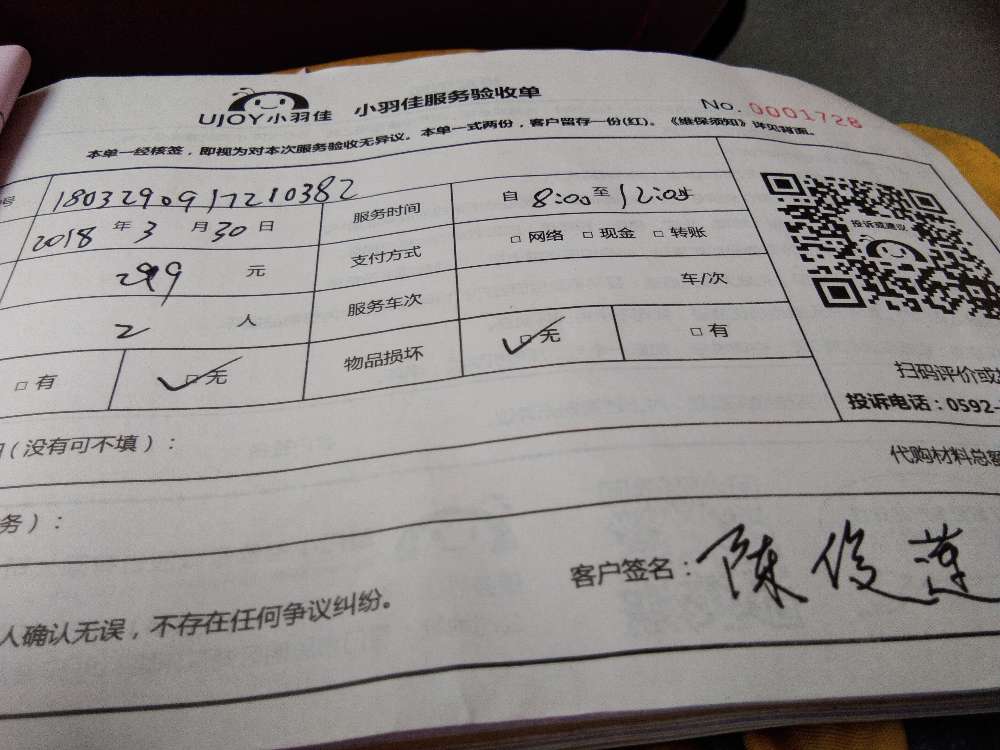 UJOY小羽佳 小羽佳服务验收单 No. 0001728
本单一经核签，即视为对本次服务验收无异议。本单一式两份，客户留存一份(红)。《维保须知》详见背面。
号 1803290917210382 服务时间 自 8:00 至 12:05
2018 年 3 月 30 日 支付方式 □ 网络 □ 现金 □ 转账
299 元 服务车次 车/次
2 人 物品损坏 ☑ 无 □ 有
□ 有 ☑ 无
投诉或建议
扫码评价或
投诉电话：0592-
(没有可不填)：
代购材料总额
务)：
客户签名：陈俊莲
人确认无误，不存在任何争议纠纷。